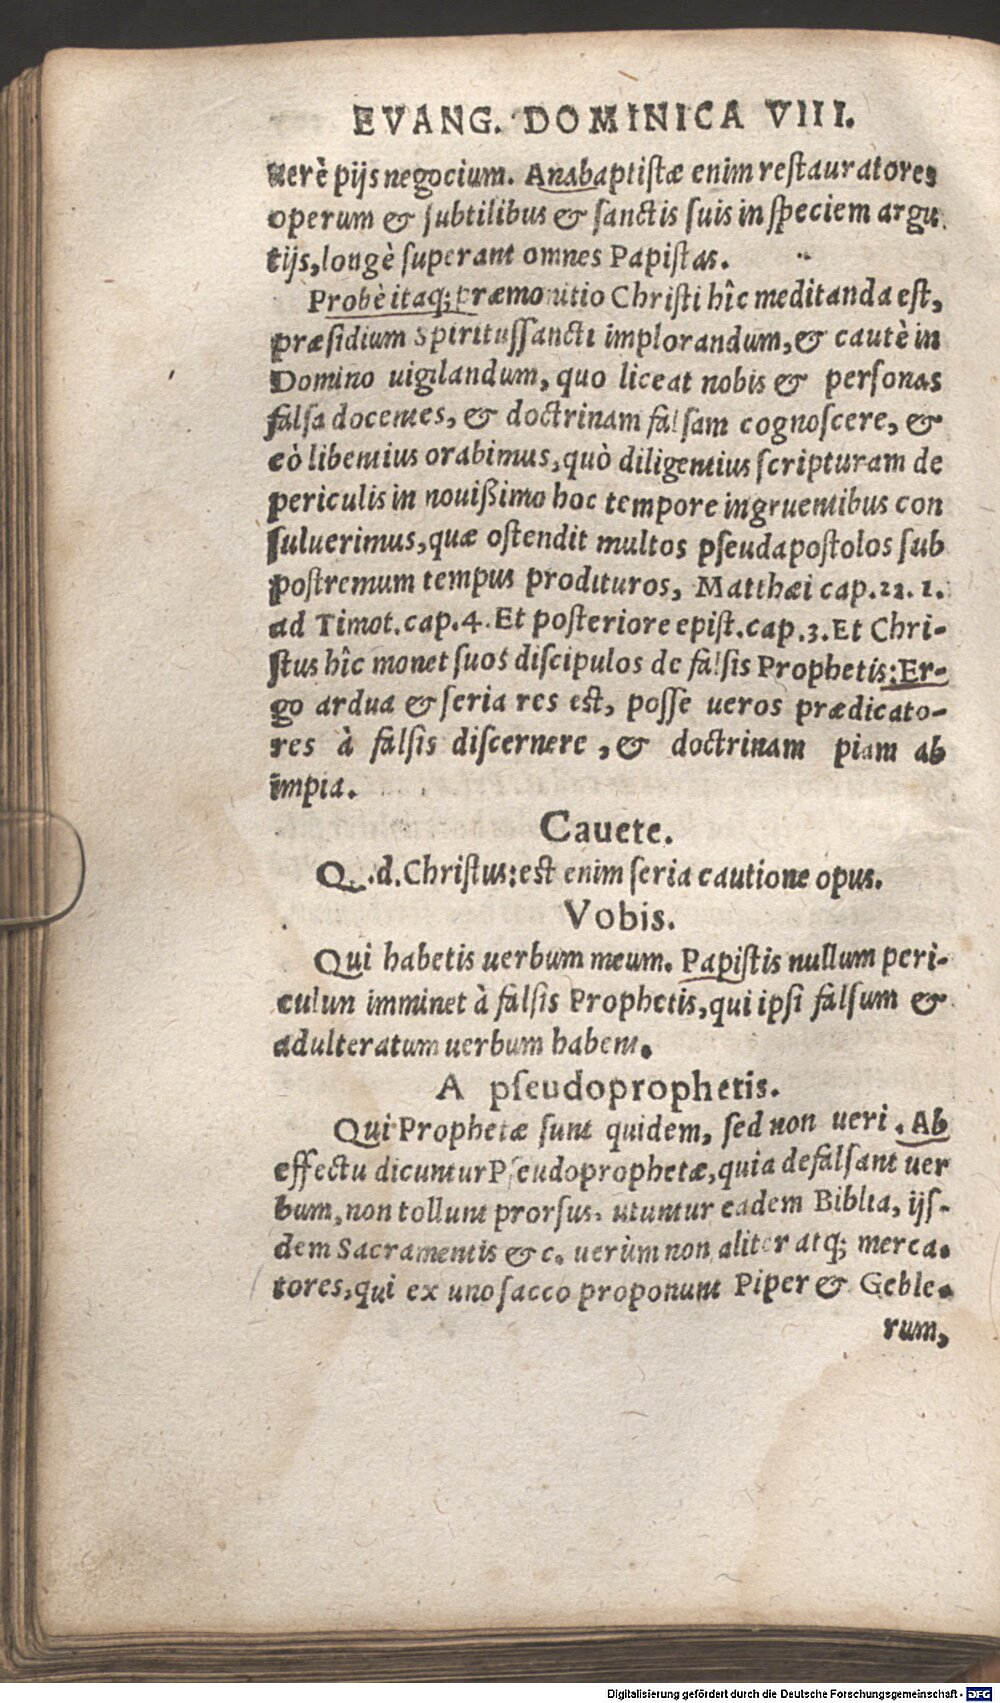 EVANG. DOMINICA VIII.
uerè pijs negocium. Anabaptistæ enim restauratores
operum & subtilibus & sanctis suis in speciem argu
tijs, longè superant omnes Papistas.
Probè itaq; præmonitio Christi hîc meditanda est,
præsidium Spiritussancti implorandum, & cautè in
Domino uigilandum, quo liceat nobis & personas
falsa docentes, & doctrinam falsam cognoscere, &
eò libentius orabimus, quò diligentius scripturam de
periculis in nouißimo hoc tempore ingruentibus con
suluerimus, quæ ostendit multos pseudapostolos sub
postremum tempus prodituros, Matthæi cap.22. 1.
ad Timot. cap.4. Et posteriore epist. cap.3. Et Chri-
stus hîc monet suos discipulos de falsis Prophetis: Er-
go ardua & seria res est, posse ueros prædicato-
res à falsis discernere, & doctrinam piam ab
impia.
Cauete.
Q. d. Christus: est enim seria cautione opus.
Vobis.
Qui habetis uerbum meum. Papistis nullum peri-
culun imminet à falsis Prophetis, qui ipsi falsum &
adulteratum uerbum habent.
A pseudoprophetis.
Qui Prophetæ sunt quidem, sed non ueri. Ab
effectu dicuntur Pseudoprophetæ, quia defalsant uer
bum, non tollunt prorsus. utuntur eadem Biblia, ijs-
dem Sacramentis &c. uerùm non aliter atq; merca-
tores, qui ex uno sacco proponunt Piper & Geble-
rum,
Digitalisierung gefördert durch die Deutsche Forschungsgemeinschaft - DFG